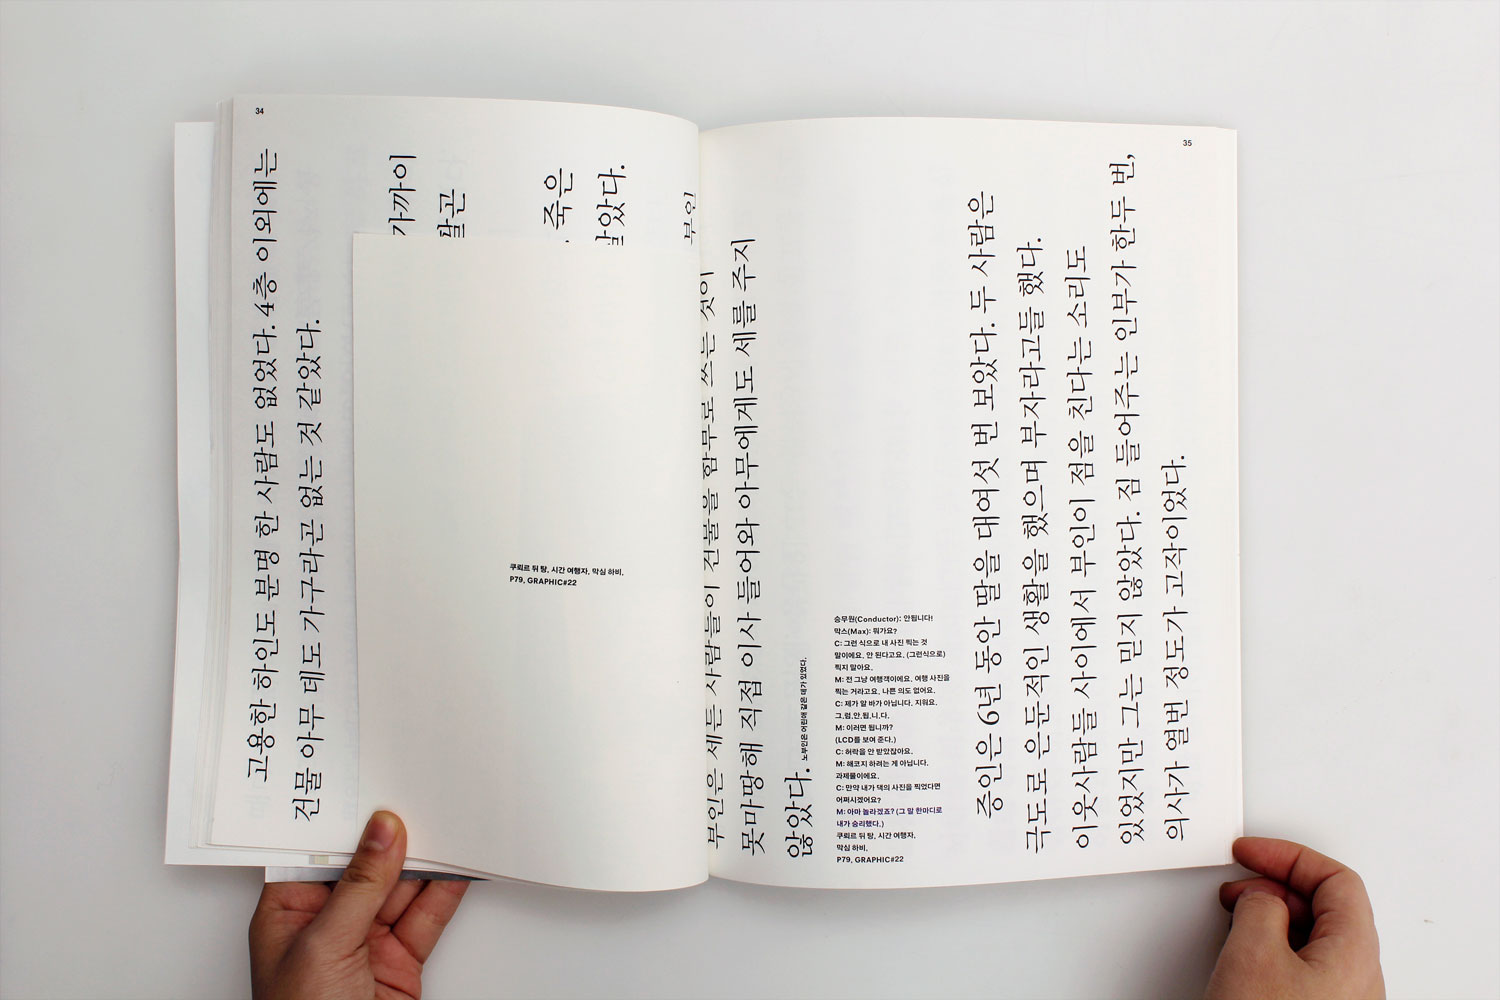 34
고용한 하인도 분명 한 사람도 없었다. 4층 이외에는
건물 아무 데도 가구라곤 없는 것 같았다.
가까이
죽은
았다.
부인
쿠뢰르 뒤 탕, 시간 여행자, 막심 하비.
P79, GRAPHIC#22
35
부인은 세든 사람들이 건물을 함부로 쓰는 것이
못마땅해 직접 이사 들어와 아무에게도 세를 주지
않았다. 노부인은 어린애 같은 데가 있었다.
승무원(Conductor): 안됩니다!
막스(Max): 뭐가요?
C: 그런 식으로 내 사진 찍는 것
말이에요. 안 된다고요. (그런식으로)
찍지 말아요.
M: 전 그냥 여행객이에요. 여행 사진을
찍는 거라고요. 나쁜 의도 없어요.
C: 제가 알 바가 아닙니다. 지워요.
그.럼.안.됩.니.다.
M: 이러면 됩니까?
(LCD를 보여 준다.)
C: 허락을 안 받았잖아요.
M: 해코지 하려는 게 아닙니다.
과제물이에요.
C: 만약 내가 댁의 사진을 찍었다면
어쩌시겠어요?
M: 아마 놀라겠죠? (그 말 한마디로
내가 승리했다.)
쿠뢰르 뒤 탕, 시간 여행자,
막심 하비.
P79, GRAPHIC#22
증인은 6년 동안 딸을 대여섯 번 보았다. 두 사람은
극도로 은둔적인 생활을 했으며 부자라고들 했다.
이웃사람들 사이에서 부인이 점을 친다는 소리도
있었지만 그는 믿지 않았다. 짐 들어주는 인부가 한두 번,
의사가 열번 정도가 고작이었다.